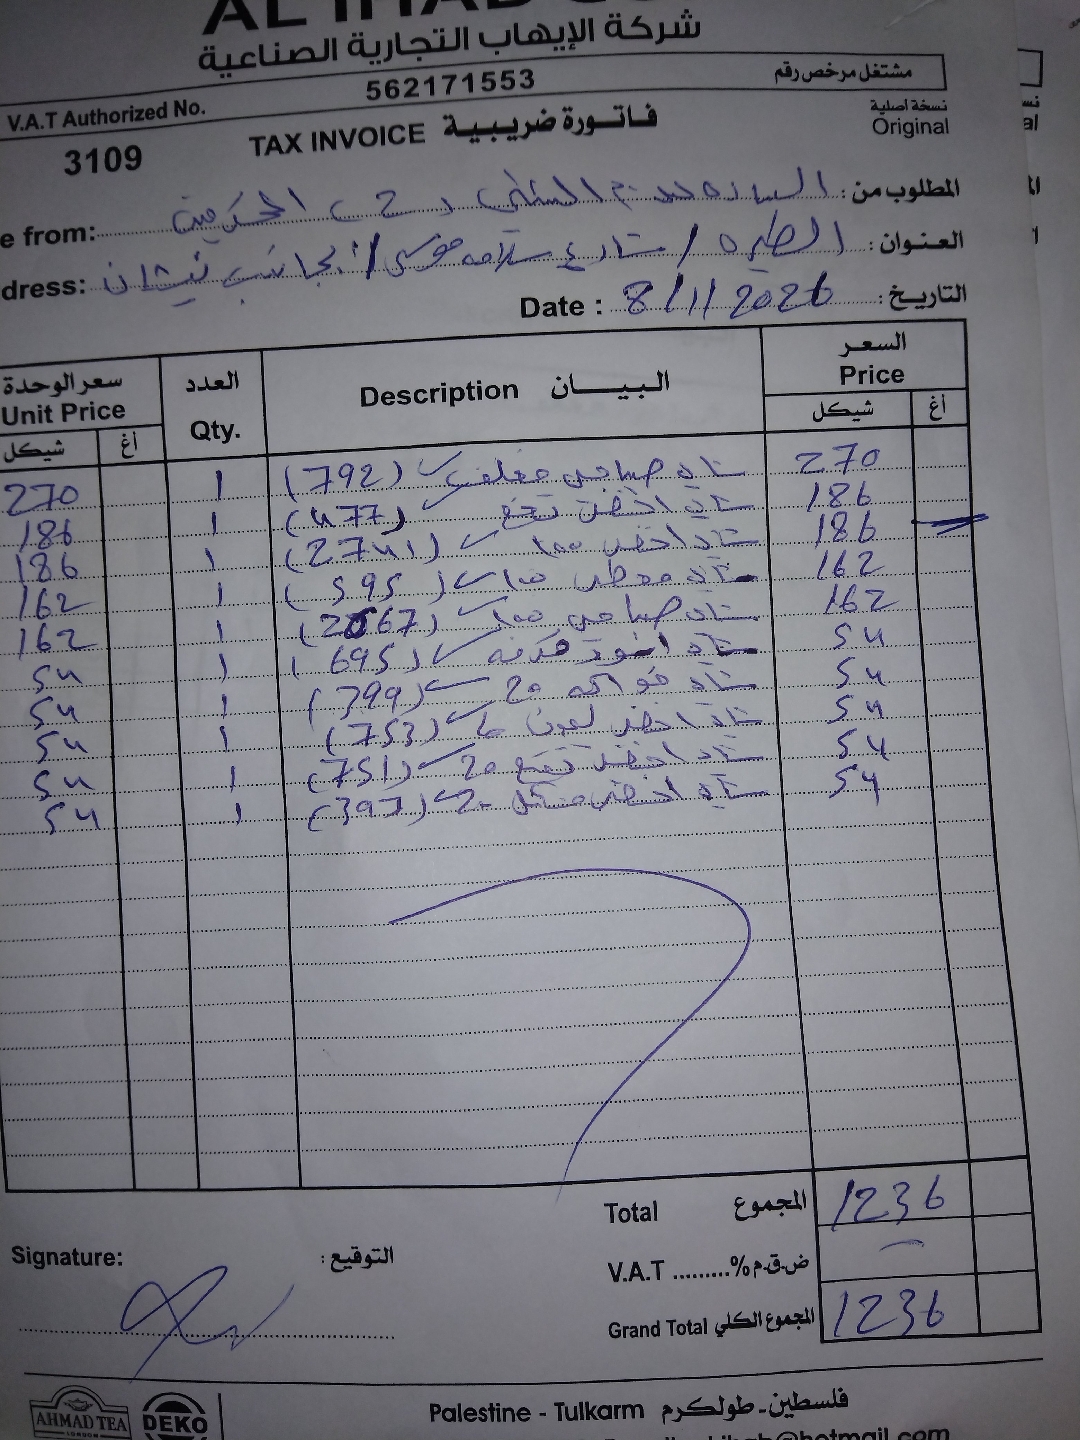 شركة الإيهاب التجارية الصناعية
V.A.T Authorized No. 562171553 مشتغل مرخص رقم
3109 TAX INVOICE فاتورة ضريبية نسخة أصلية
Original
e from: المطلوب من:
dress: الطيره / شارع سلامه موسى / بجانب نيشان العنوان:
Date : 8/1/2026 التاريخ:
سعر الوحدة العدد البيان السعر
Unit Price Qty. Description Price
شيكل أغ شيكل أغ
270 1 (792) شاي صباحي مغلف 270
186 1 (477) شاي اخضر نعنع 186
186 1 (2741) شاي اخضر 100 186
162 1 (595) شاي 100 162
162 1 (2067) شاي صباحي 100 162
54 1 (695) شاي اسود 54
54 1 (399) شاي فواكه 20 54
54 1 (753) شاي اخضر ليمون 54
54 1 (751) شاي اخضر نعنع 20 54
54 1 (397) شاي اخضر مشكل 20 54
Total المجموع 1236
V.A.T .........% ض.ق.م
Grand Total المجموع الكلي 1236
Signature: التوقيع:
AHMAD TEA
LONDON
DEKO
Palestine - Tulkarm فلسطين - طولكرم
@hotmail.com